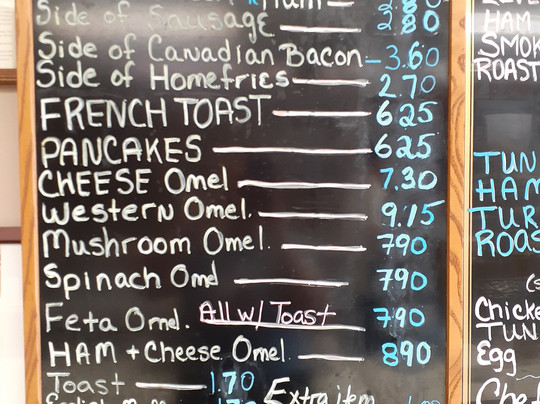 Ham 2.80
Side of Sausage 2.80
Side of Canadian Bacon 3.60
Side of Homefries 2.70
FRENCH TOAST 625
PANCAKES 625
CHEESE Omel 7.30
Western Omel. 9.15
Mushroom Omel. 790
Spinach Omel 790
Feta Omel. All w/ Toast 790
HAM + Cheese Omel. 890
Toast 1.70
Extra item
HAM
SMOK
ROAST
TUN
HAM
TUR
ROAS
Chicke
TUN
Egg
Chef